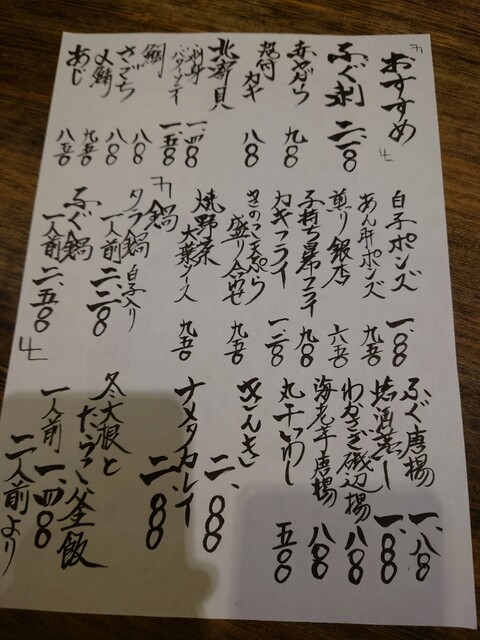 おすすめ
ふぐ刺 二、二〇〇
赤やがら 九〇〇
殻付カキ 八〇〇
北寄貝 一、四〇〇
刺身 一、五〇〇
鯛 八〇〇
さごち 八〇〇
〆鯖 九五〇
あじ 八五〇
白子ポンズ 一、〇〇〇
あん肝ポンズ 九五〇
煎り銀杏 六五〇
子持ち昆布フライ 九〇〇
カキフライ 一、二〇〇
きのこ天ぷら盛り合わせ 九五〇
焼野菜大葉ソース 九五〇
鍋
タラ鍋 白子入り
一人前 二、二〇〇
ふぐ鍋
一人前 二、五〇〇
ふぐ唐揚 一、八〇〇
酒蒸し 一、〇〇〇
わかさぎ磯辺揚 八〇〇
海老芋唐揚 八〇〇
丸干いわし 五〇〇
きんき 二、〇〇〇
ナメタカレイ 二、〇〇〇
冬大根と
たらこ釜飯
一人前 一、四〇〇
二人前より